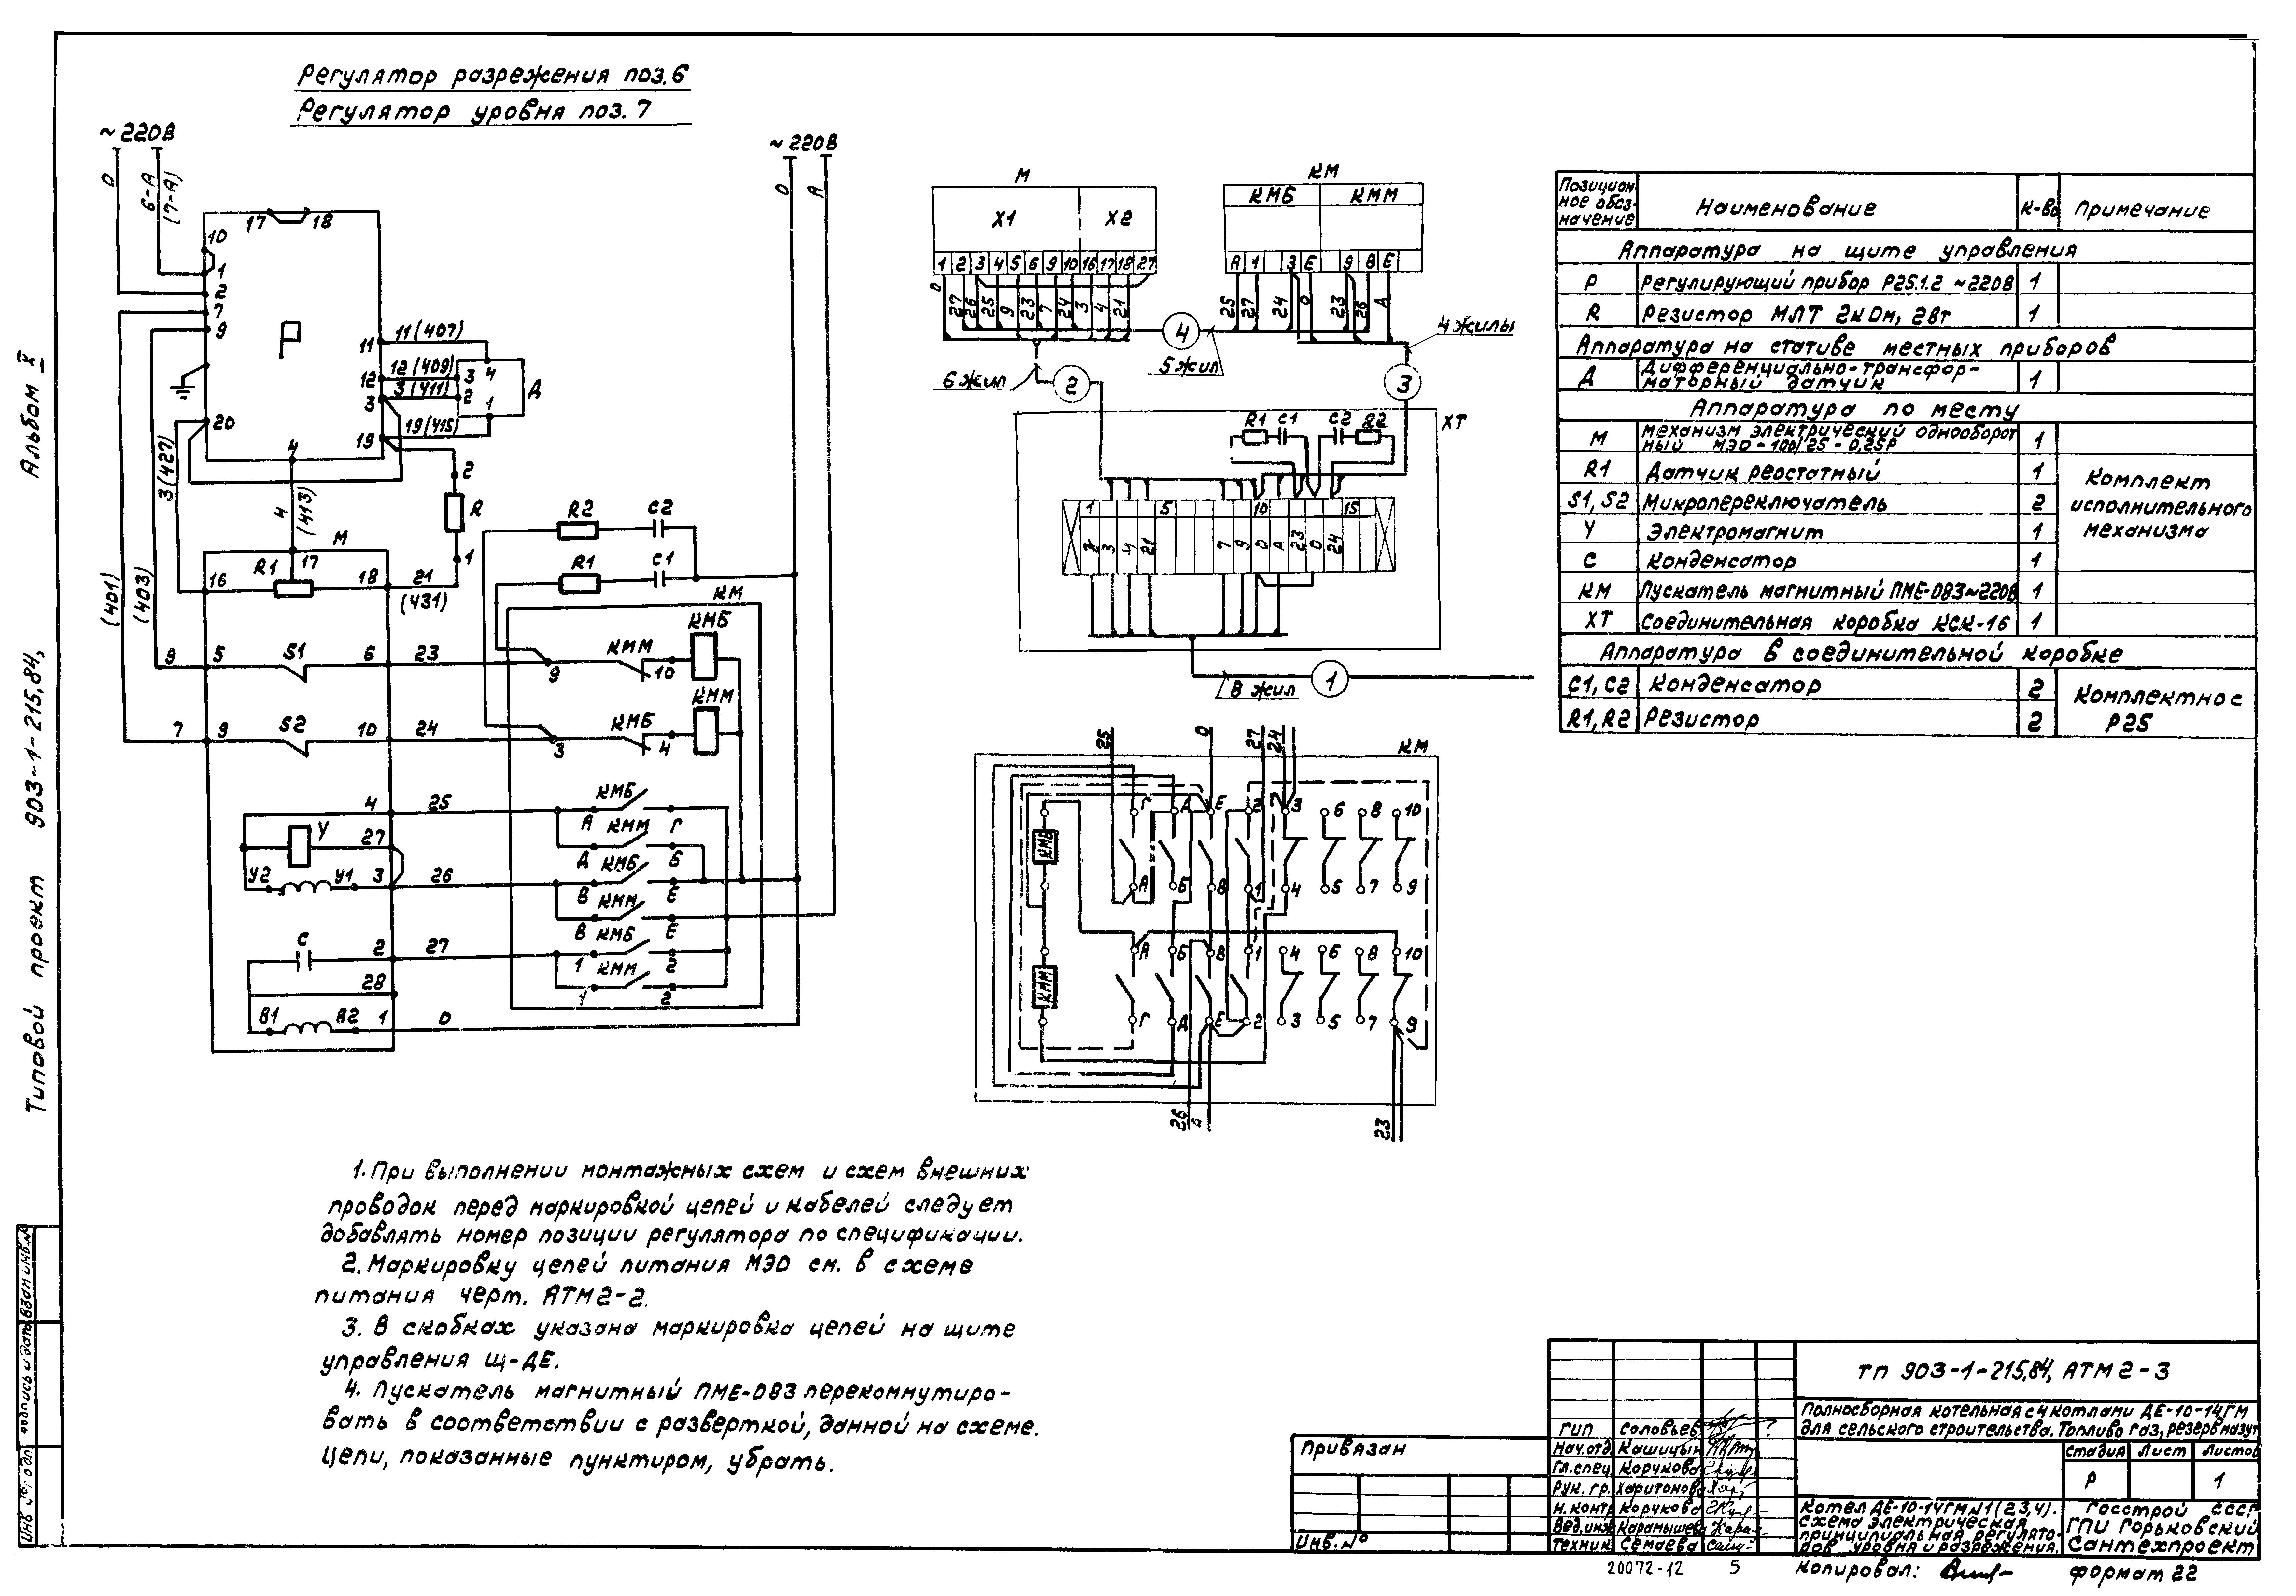 Регулятор разрежения поз.6
Регулятор уровня поз.7
~220В
0
6-А
(7-А)
17 18
10
1
2
7
9
Р
20
4
11
12
3
19
11(407)
12(409)
3(411)
19(415)
3 4
2
1
Д
3(427)
4
(413)
2
R
1
М
16
R1
17
18
21
(431)
(401)
(403)
9 5 S1 6 23
7 9 S2 10 24
R2 С2
R1 С1
КМ
9 КММ 10 КМБ
3 КМБ 4 КММ
4 25
У 27
У2 У1 3 26
С 2 27
28
В1 В2 1 0
КМБ
А КММ Г
Д КМБ Б
В КММ Е
В КМБ Е
1 КММ 2
1 2
~220В
0
А
М
Х1 Х2
1 2 3 4 5 6 9 10 16 17 18 27
0 27 26 25 9 23 7 24 3 4 21
КМ
КМБ КММ
А 1 3 Е 9 В Е
25 27 24 0 23 26 А
4
5 жил
4 жилы
6 жил
2
3
ХТ
R1 С1 С2 R2
1 5 10 15
3 4 21 7 9 0 А 23 0 24
8 жил
1
25 0 27 24
КМ
Г Д Е 2 3 6 8 10
КМБ
А Б В 1 4 5 7 9
А Б В 1 4 6 8 10
КММ
Г Д Е 2 3 5 7 9
26 А 23
Позицион-
ное обоз-
начение
Наименование
К-во
Примечание
Аппаратура на щите управления
Р Регулирующий прибор Р25.1.2 ~220В 1
R Резистор МЛТ 2кОм, 2вт 1
Аппаратура на стативе местных приборов
Д Дифференциально-трансфор-
маторный датчик 1
Аппаратура по месту
М Механизм электрический однооборот
ный МЭО-100/25-0,25Р 1
R1 Датчик реостатный 1
S1, S2 Микропереключатель 2
У Электромагнит 1
С Конденсатор 1
Комплект
исполнительного
механизма
КМ Пускатель магнитный ПМЕ-083~220В 1
ХТ Соединительная коробка КСК-16 1
Аппаратура в соединительной коробке
С1, С2 Конденсатор 2
R1, R2 Резистор 2
Комплектно с
Р25
1. При выполнении монтажных схем и схем внешних
проводок перед маркировкой цепей и кабелей следует
добавлять номер позиции регулятора по спецификации.
2. Маркировку цепей питания МЭО см. в схеме
питания черт. АТМ2-2.
3. В скобках указана маркировка цепей на щите
управления Щ-ДЕ.
4. Пускатель магнитный ПМЕ-083 перекоммутиро-
вать в соответствии с разверткой, данной на схеме.
Цепи, показанные пунктиром, убрать.
Альбом X
Типовой проект 903-1-215,84,
Взам инв.№
Подпись и дата
Инв № подл
Привязан
Инв. №
ГИП Соловьев
Нач.отд Кашицын
Гл.спец Корчкова
Рук. гр. Харитонова
Н.контр Корчкова
Вед.инж Карамышева
Техник Семаева
ТП 903-1-215,84, АТМ2-3
Полносборная котельная с 4 котлами ДЕ-10-14ГМ
для сельского строительства. Топливо газ, резерв мазут
Стадия Лист Листов
Р 1
Котел ДЕ-10-14ГМ №1 (2,3,4).
Схема электрическая
принципиальная регулято-
ров уровня и разрежения.
Госстрой СССР
ГПИ Горьковский
Сантехпроект
20072-12 5
Копировал:
Формат 22